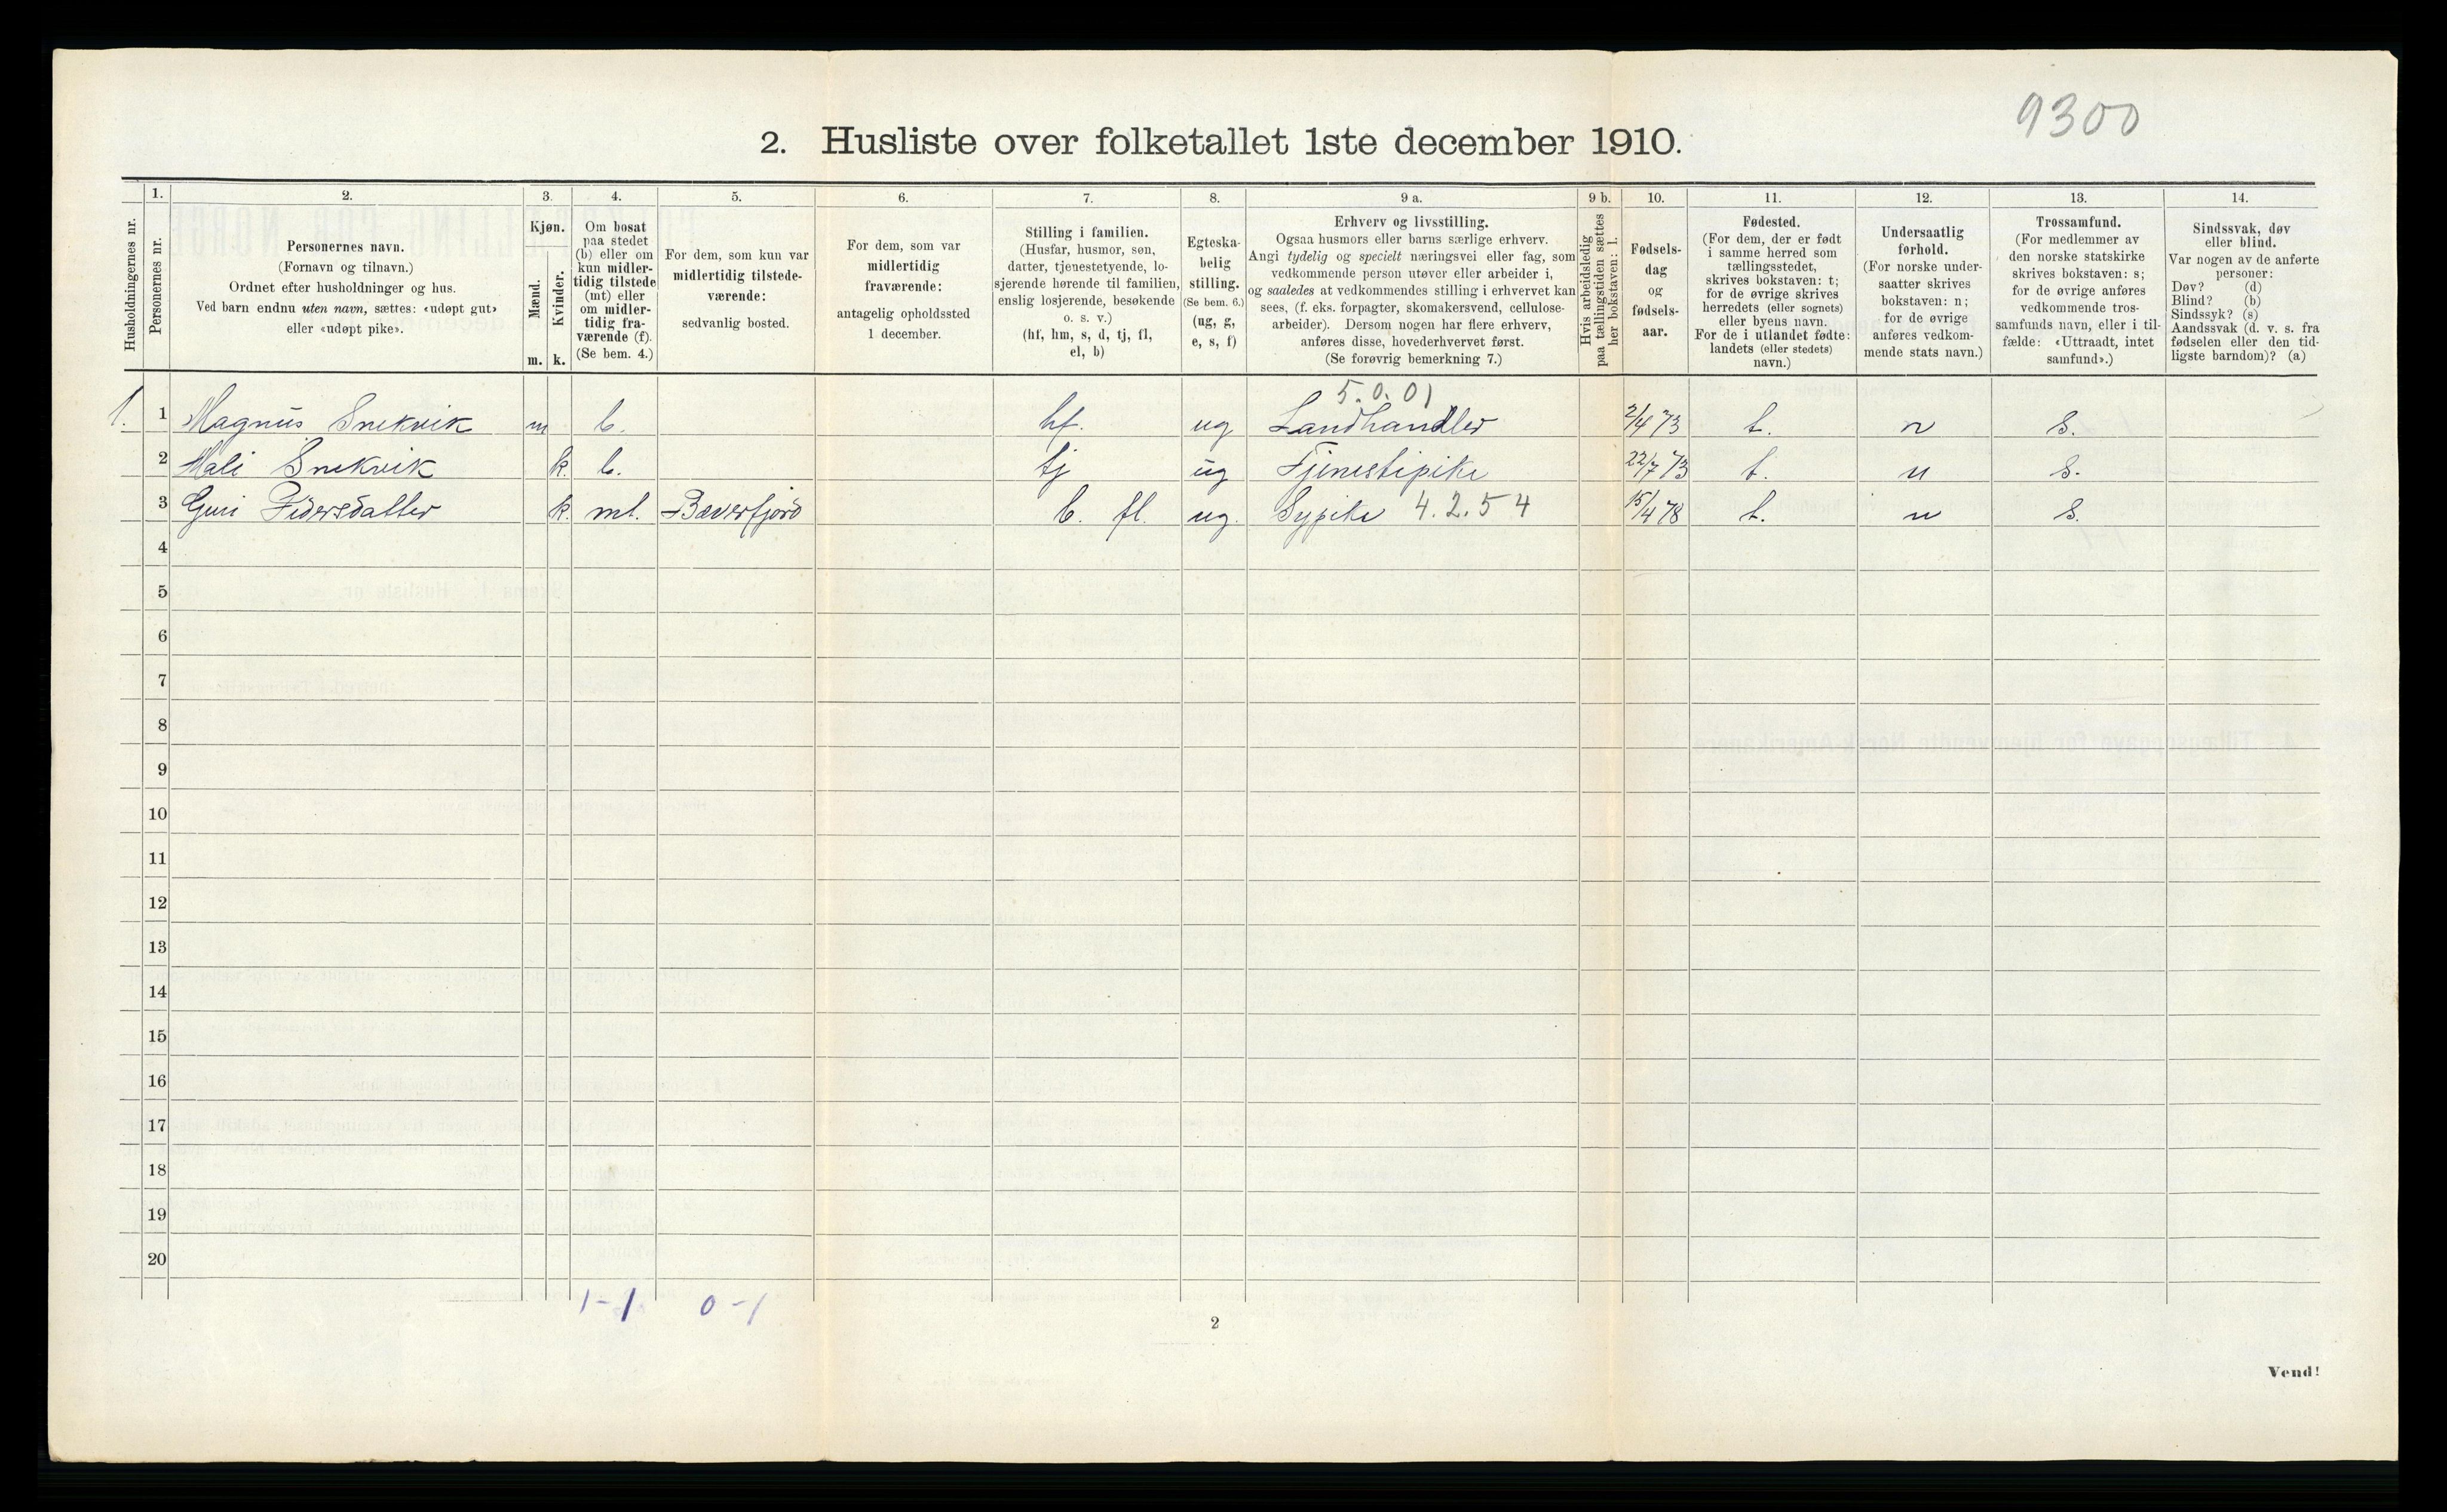 9300
2. Husliste over folketallet 1ste december 1910.
Husholdningernes nr.
1.
Personernes nr.
2.
Personernes navn.
(Fornavn og tilnavn.)
Ordnet efter husholdninger og hus.
Ved barn endnu uten navn, sættes: «udøpt gut»
eller «udøpt pike».
3.
Kjøn.
Mænd.
m.
Kvinder.
k.
4.
Om bosat
paa stedet
(b) eller om
kun midler-
tidig tilstede
(mt) eller
om midler-
tidig fra-
værende (f).
(Se bem. 4.)
5.
For dem, som kun var
midlertidig tilstede-
værende:
sedvanlig bosted.
6.
For dem, som var
midlertidig
fraværende:
antagelig opholdssted
1 december.
7.
Stilling i familien.
(Husfar, husmor, søn,
datter, tjenestetyende, lo-
sjerende hørende til familien,
enslig losjerende, besøkende
o. s. v.)
(hf, hm, s, d, tj, fl,
el, b)
8.
Egteska-
belig
stilling.
(Se bem. 6.)
(ug, g,
e, s, f)
9 a.
Erhverv og livsstilling.
Ogsaa husmors eller barns særlige erhverv.
Angi tydelig og specielt næringsvei eller fag, som
vedkommende person utøver eller arbeider i,
og saaledes at vedkommendes stilling i erhvervet kan
sees, (f. eks. forpagter, skomakersvend, cellulose-
arbeider). Dersom nogen har flere erhverv,
anføres disse, hovederhvervet først.
(Se forøvrig bemerkning 7.)
9 b.
Hvis arbeidsledig
paa tællingstiden sættes
her bokstaven: l.
10.
Fødsels-
dag
og
fødsels-
aar.
11.
Fødested.
(For dem, der er født
i samme herred som
tællingsstedet,
skrives bokstaven: t;
for de øvrige skrives
herredets (eller sognets)
eller byens navn.
For de i utlandet fødte:
landets (eller stedets)
navn.)
12.
Undersaatlig
forhold.
(For norske under-
saatter skrives
bokstaven: n;
for de øvrige
anføres vedkom-
mende stats navn.)
13.
Trossamfund.
(For medlemmer av
den norske statskirke
skrives bokstaven: s;
for de øvrige anføres
vedkommende tros-
samfunds navn, eller i til-
fælde: «Uttraadt, intet
samfund».)
14.
Sindssvak, døv
eller blind.
Var nogen av de anførte
personer:
Døv? (d)
Blind? (b)
Sindssyk? (s)
Aandssvak (d. v. s. fra
fødselen eller den tid-
ligste barndom)? (a)
5.0.01
1. 1 Magnus Snekvik m b. hf. ug Landhandler 2/4 73 t. n s.
2 Mali Snekvik k. b. tj ug Tjenestepike 22/7 73 t. n s.
3 Guri Pedersdatter k. mt. Bæverfjord b. fl. ug. Sypike 4.2.54 15/4 78 t. n s.
4
5
6
7
8
9
10
11
12
13
14
15
16
17
18
19
20
1-1 0-1
2
Vend!